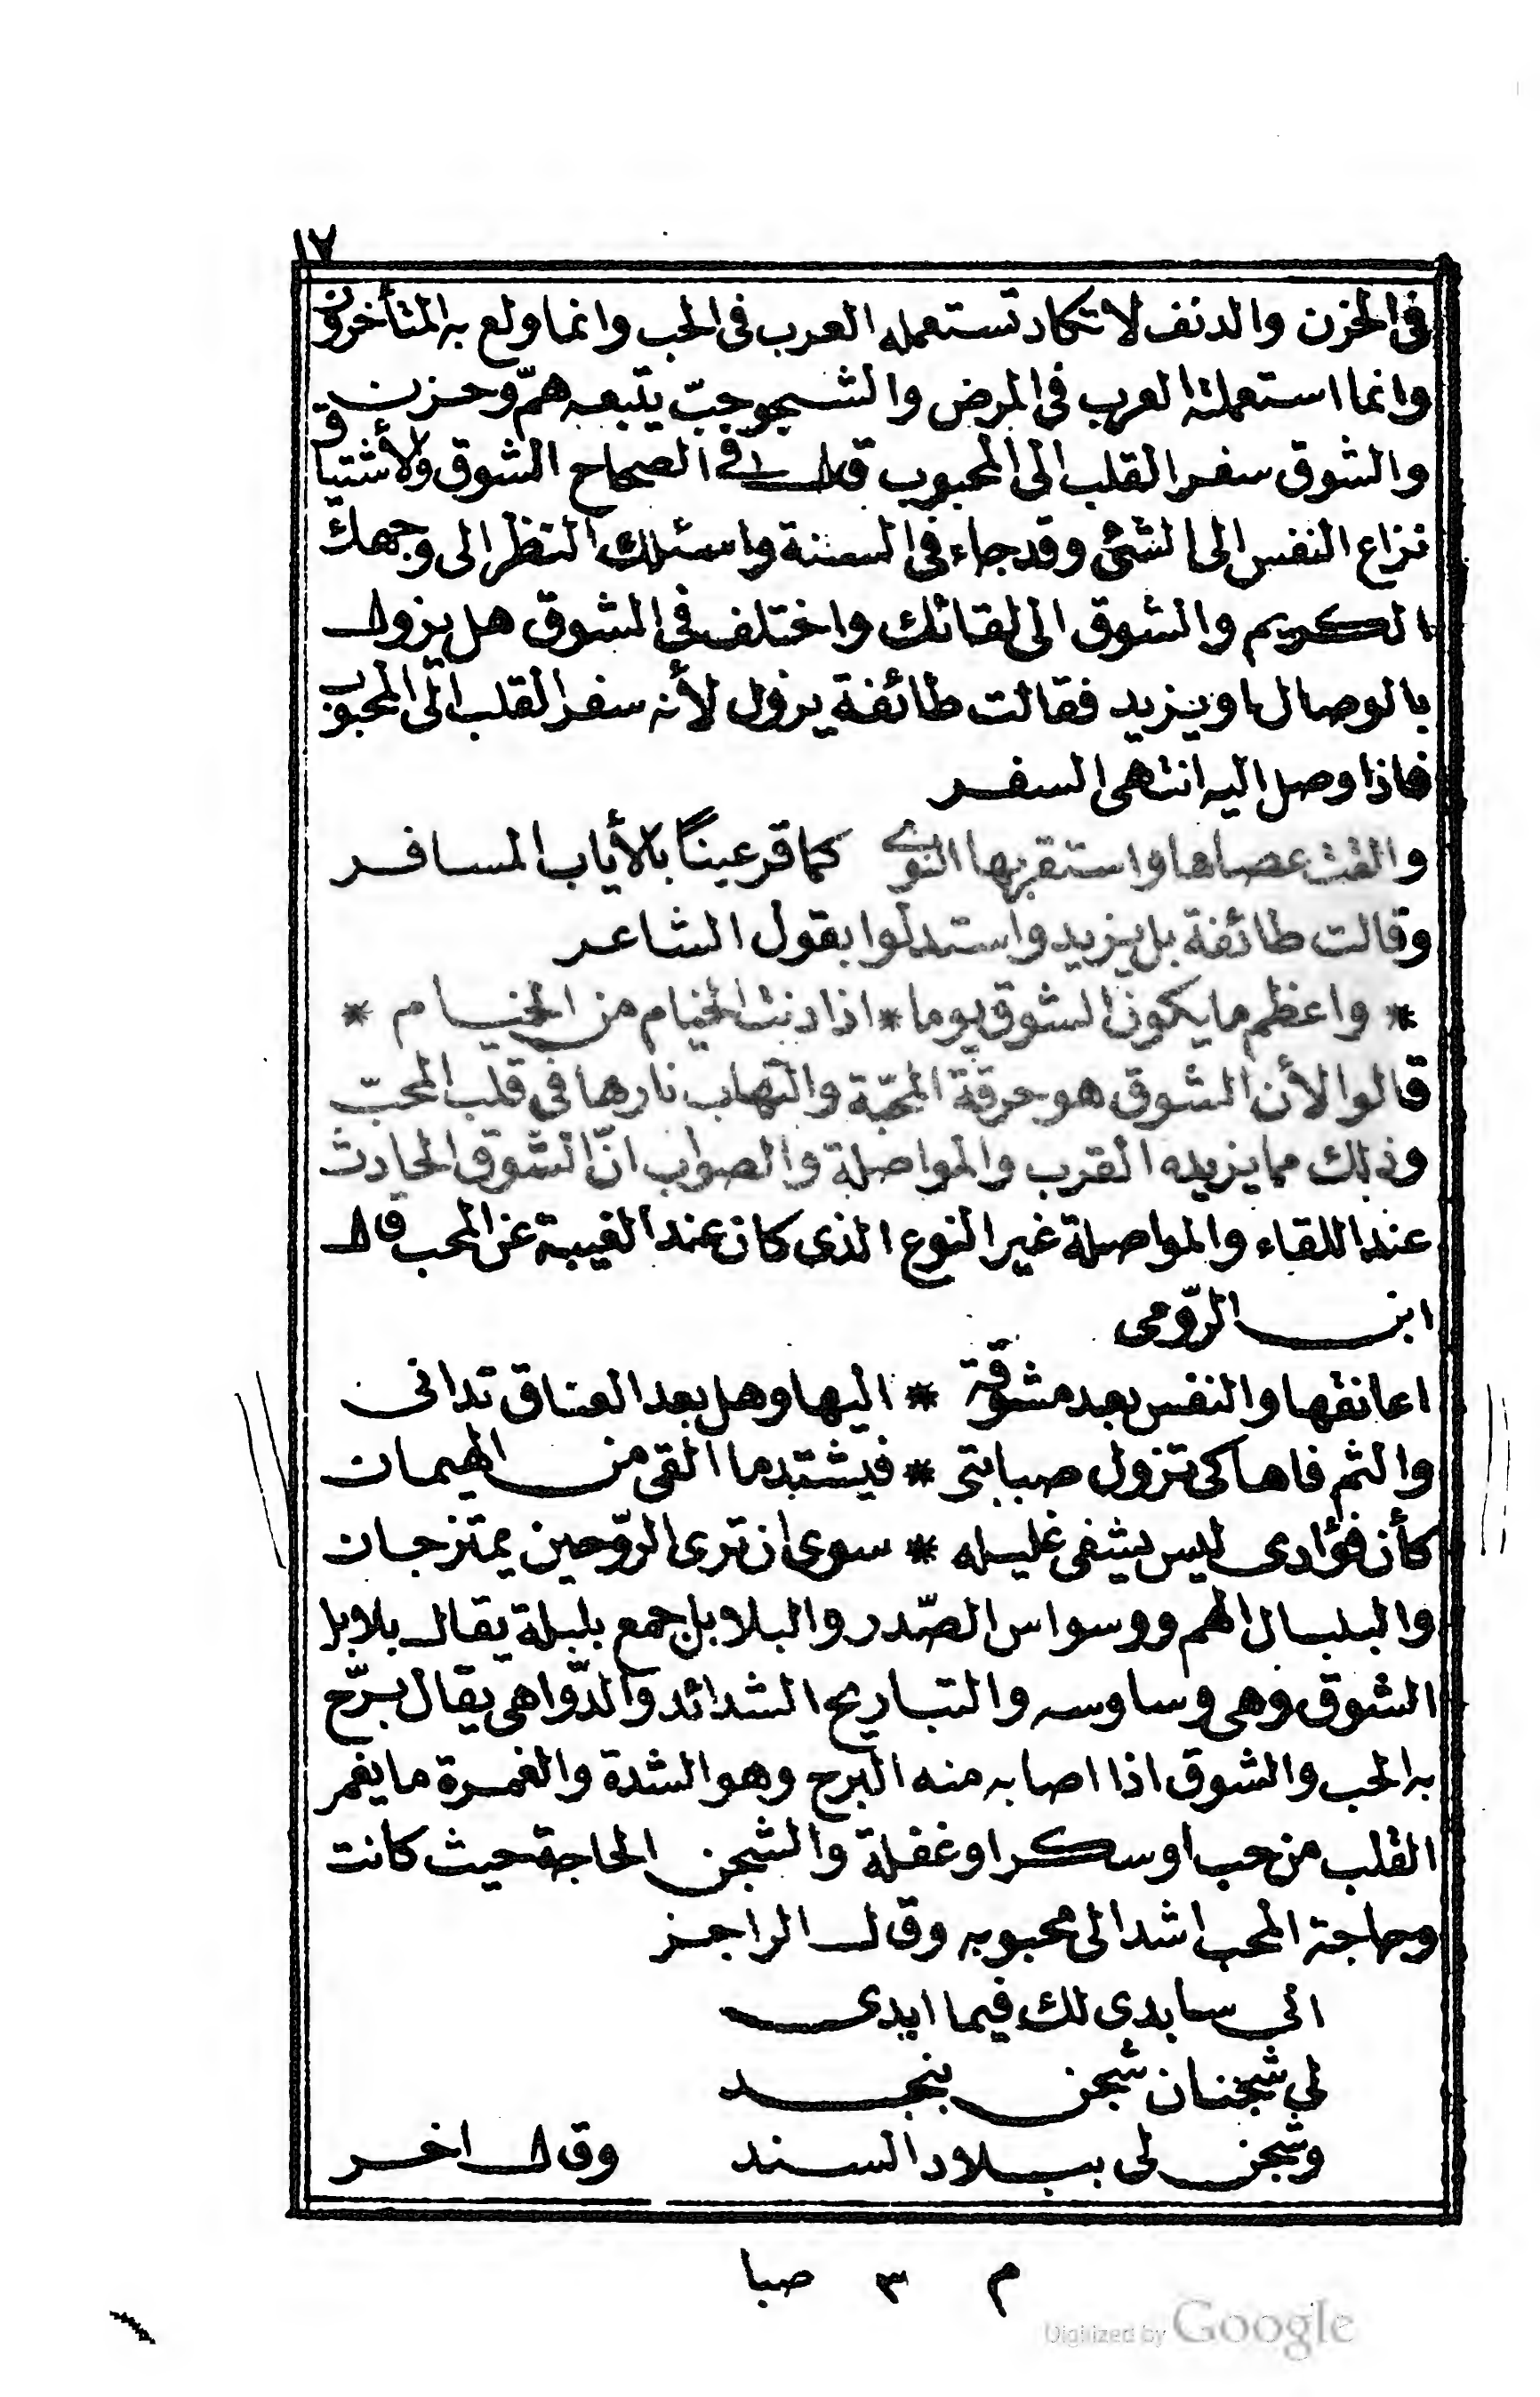 ١٧
فى الحزن والدنف لا تكاد تستعمله العرب فى الحب وانما ولع به المتأخرون
وانما استعملته العرب فى المرض والشجو حبّ يتبعه همّ وحزن
والشوق سفر القلب الى المحبوب قال فى الصحاح الشوق ولأشتياق
نزاع النفس الى الشئ وقد جاء فى السنة واسئلك النظر الى وجهك
الكريم والشوق الى لقائك واختلف فى الشوق هل يزول
بالوصال او يزيد فقالت طائفة يزول لأنه سفر القلب الى المحبوب
فاذا وصل اليه انتهى السفر
والقت عصاها واستقر بها النوى كما قر عيناً بالأياب المسافر
وقالت طائفة بل يزيد واستدلوا بقول الشاعر
* واعظم ما يكون الشوق يوما * اذا دنت الخيام من الخيام *
قالوا لأن الشوق هو حرقة المحبّة والتهاب نارها فى قلب المحبّ
وذلك مما يزيده القرب والمواصلة والصواب انّ الشوق الحادث
عند اللقاء والمواصلة غير النوع الذى كان عند الغيبة عن المحب قال
ابن الرّومى
اعانقها والنفس بعد مشوّقة * اليها وهل بعد العناق تدانى
والثم فاها كى تزول صبابتى * فيشتد ما القى من الهيمان
كأن فؤادى ليس يشفى غليله * سوى ان ترى الرّوحين يمتزجان
والبلبال الهم ووسواس الصّدر والبلابل جمع بلبلة يقال بلابل
الشوق وهى وساوسه والتباريح الشدائد والدّواهى يقال برّح
به الحب والشوق اذا اصابه منه البرح وهو الشدة والغمرة ما يغمر
القلب من حب او سكر او غفلة والشجن الحاجة حيث كانت
وحاجة المحب اشد الى محبوبه وقال الراجز
انى سابدى لك فيما ابدى
لى شجنان شجن بنجد
وشجن لى ببلاد السند وقال اخر
م ٣ صبا
Digitized by Google